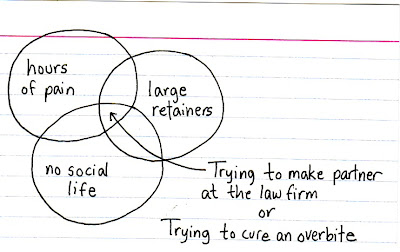 hours
of pain
large
retainers
no social
life
Trying to make partner
at the law firm
or
Trying to cure an overbite